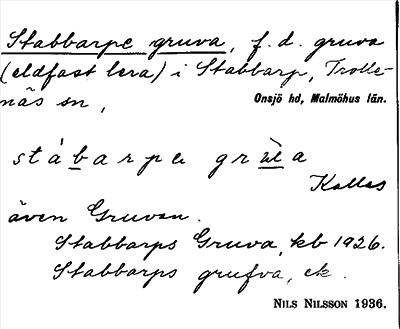 Stabbarpe gruva, f. d. gruva
(eldfast lera) i Stabbarp, Trolle-
näs sn,
Onsjö hd, Malmöhus län.
stábarpe
Kallas
även Gruvan.
Stabbarps Gruva, kb 1926.
Stabbarps grufva, ek.
NILS NILSSON 1936.